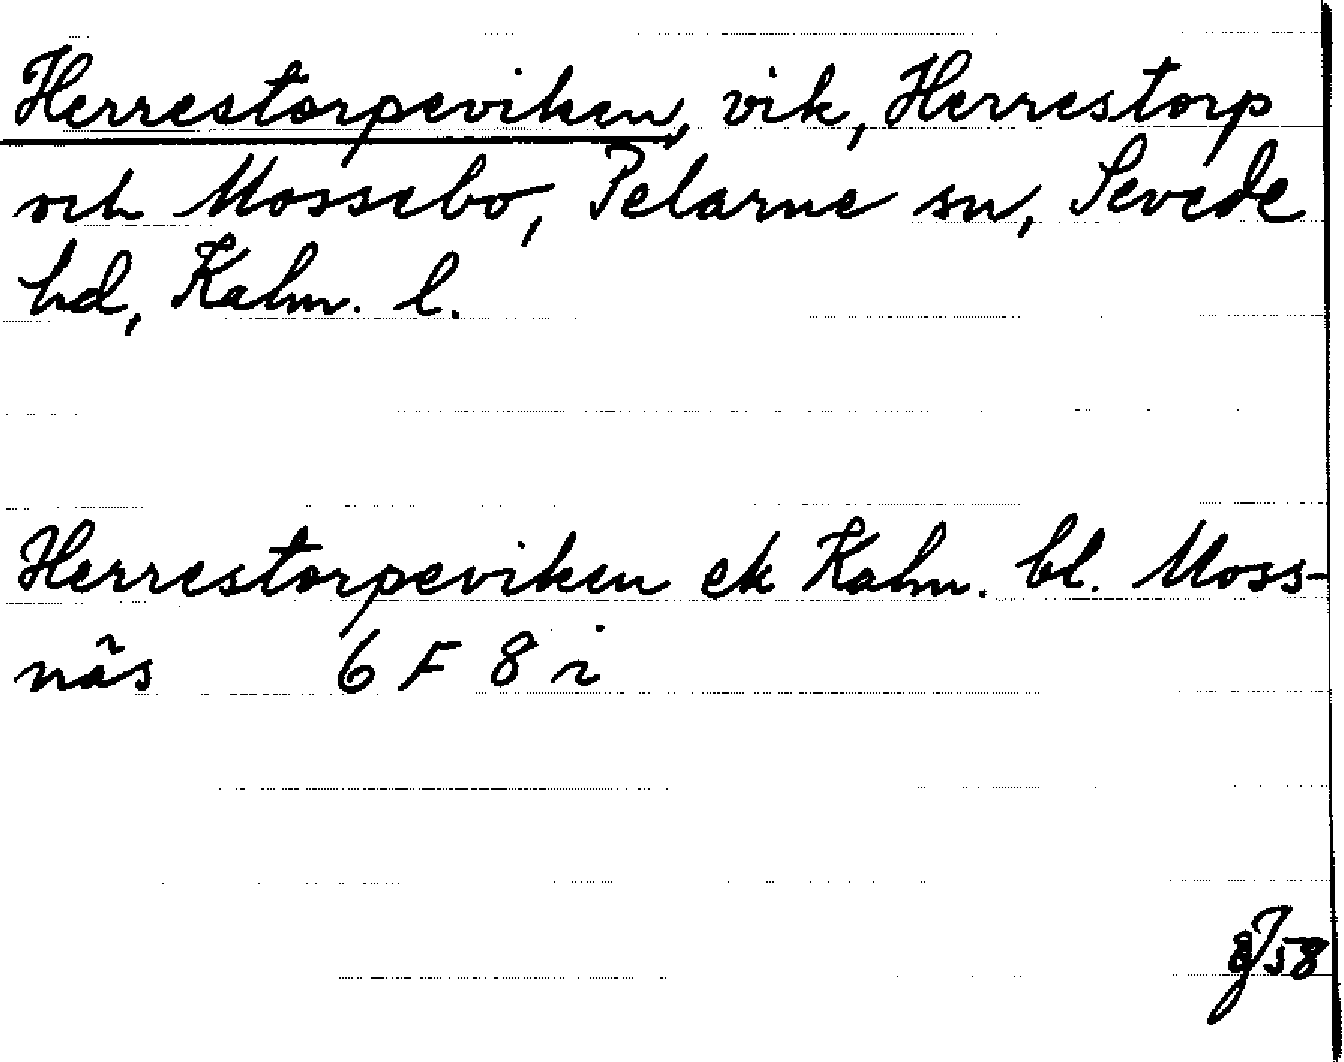 Herrestorpeviken, vik, Herrestorp
och Mossebo, Pelarne sn, Sevede
hd, Kalm. l.
Herrestorpeviken ek Kalm. bl. Moss-
näs 6 F 8 i
58